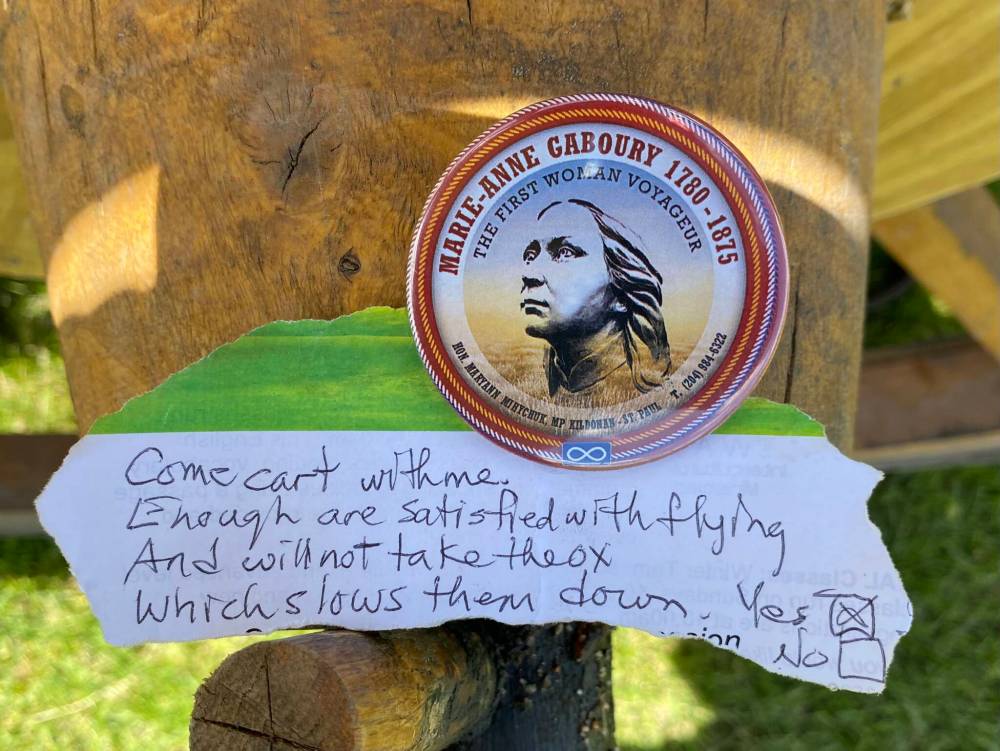 MARIE-ANNE GABOURY 1780-1875
THE FIRST WOMAN VOYAGEUR
HON. MARYANN MIHYCHUK, MP KILDONAN-ST. PAUL T. (204) 984-6322
Come cart with me.
Enough are satisfied with flying
And will not take the ox
Which slows them down. Yes
No